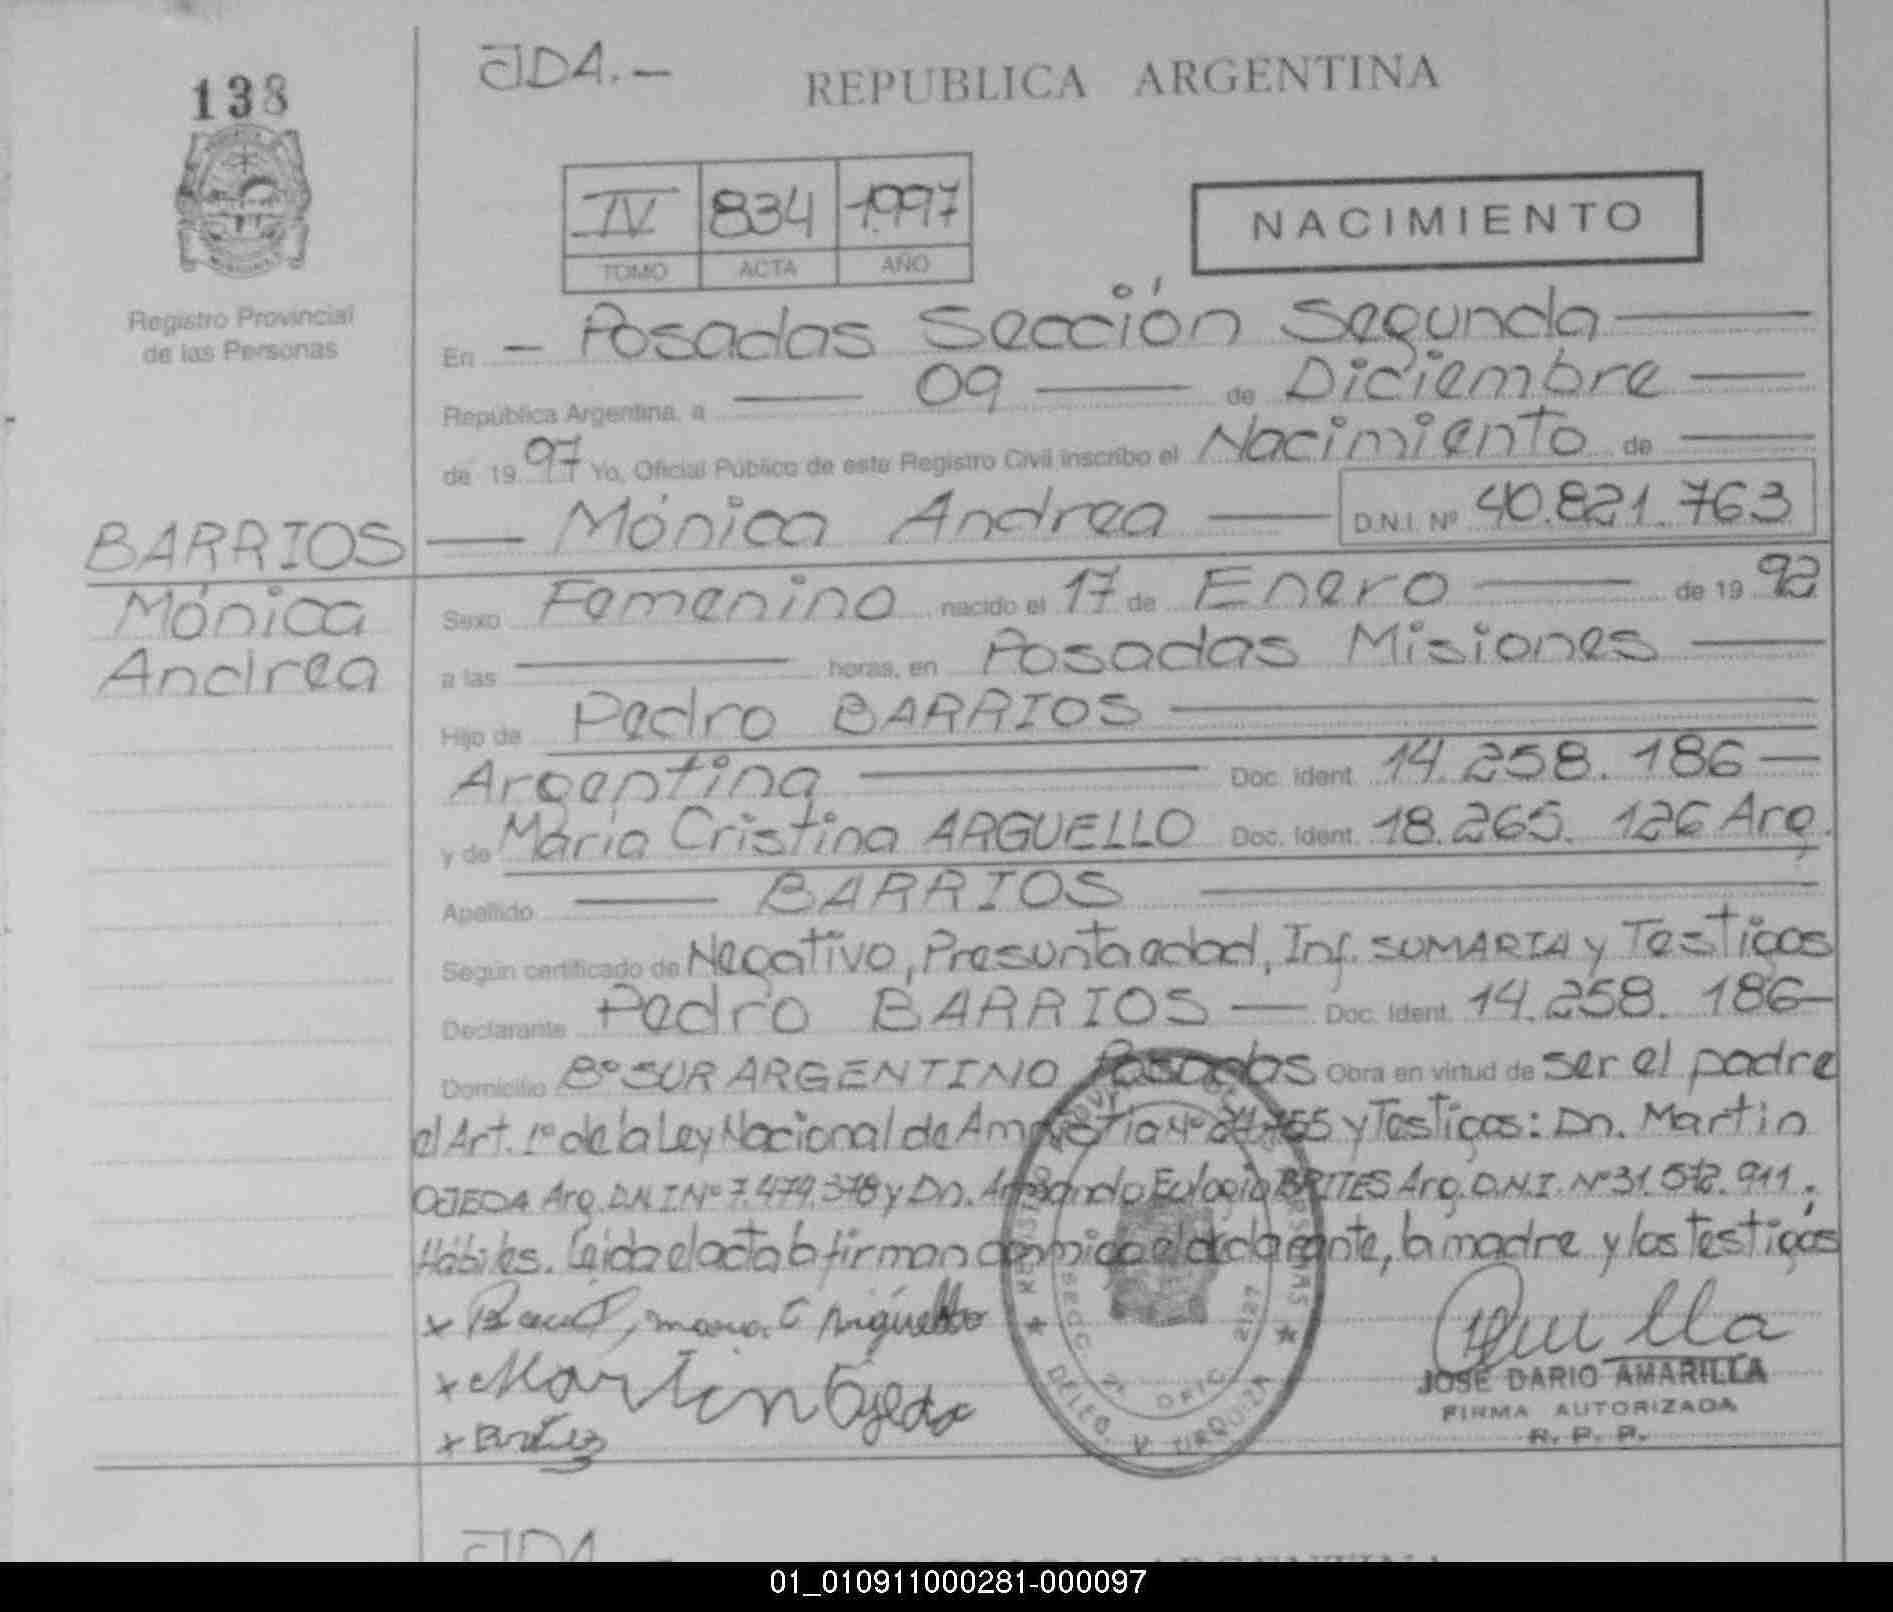 138
JDA.-
REPUBLICA ARGENTINA
IV 834 1.997
TOMO ACTA AÑO
NACIMIENTO
Registro Provincial
de las Personas
En - Posadas Sección Segunda
República Argentina, a 09 de Diciembre
de 19 97 Yo, Oficial Público de este Registro Civil inscribo el Nacimiento de
BARRIOS
Mónica
Andrea
Mónica Andrea D.N.I. Nº 40.821.763
Sexo Femenino nacido el 17 de Enero de 19 92
a las horas, en Posadas Misiones
Hijo de Pedro BARRIOS
Argentina Doc. Ident. 14.258.186-
y de María Cristina ARGUELLO Doc. Ident. 18.265.126 Arg.
Apellido BARRIOS
Según certificado de Negativo, Presunta edad, Inf. SUMARIA y Testigos
Declarante Pedro BARRIOS - Doc. Ident. 14.258.186-
Domicilio Bº SUR ARGENTINO Posadas Obra en virtud de ser el padre
el Art. 1º de la Ley Nacional de Amnistia Nº 24.755 y Testigos: Dn. Martin
OJEDA Arg. D.N.I Nº 7.479.378 y Dn. Armando Eulogio BRITES Arg. D.N.I. Nº 31.572.911,
Hábiles. Leida el acta la firman conmigo el declarante, la madre y los testigos
x maria C Arguello
x Martin Ojeda
x Brites
REGISTRO PROVINCIAL DE LAS PERSONAS
SECC. 2ª OFIC. 2127
DELEG. V. URQUIZA
JOSE DARIO AMARILLA
FIRMA AUTORIZADA
R. P. P.
JDA
REPUBLICA ARGENTINA
01_010911000281-000097